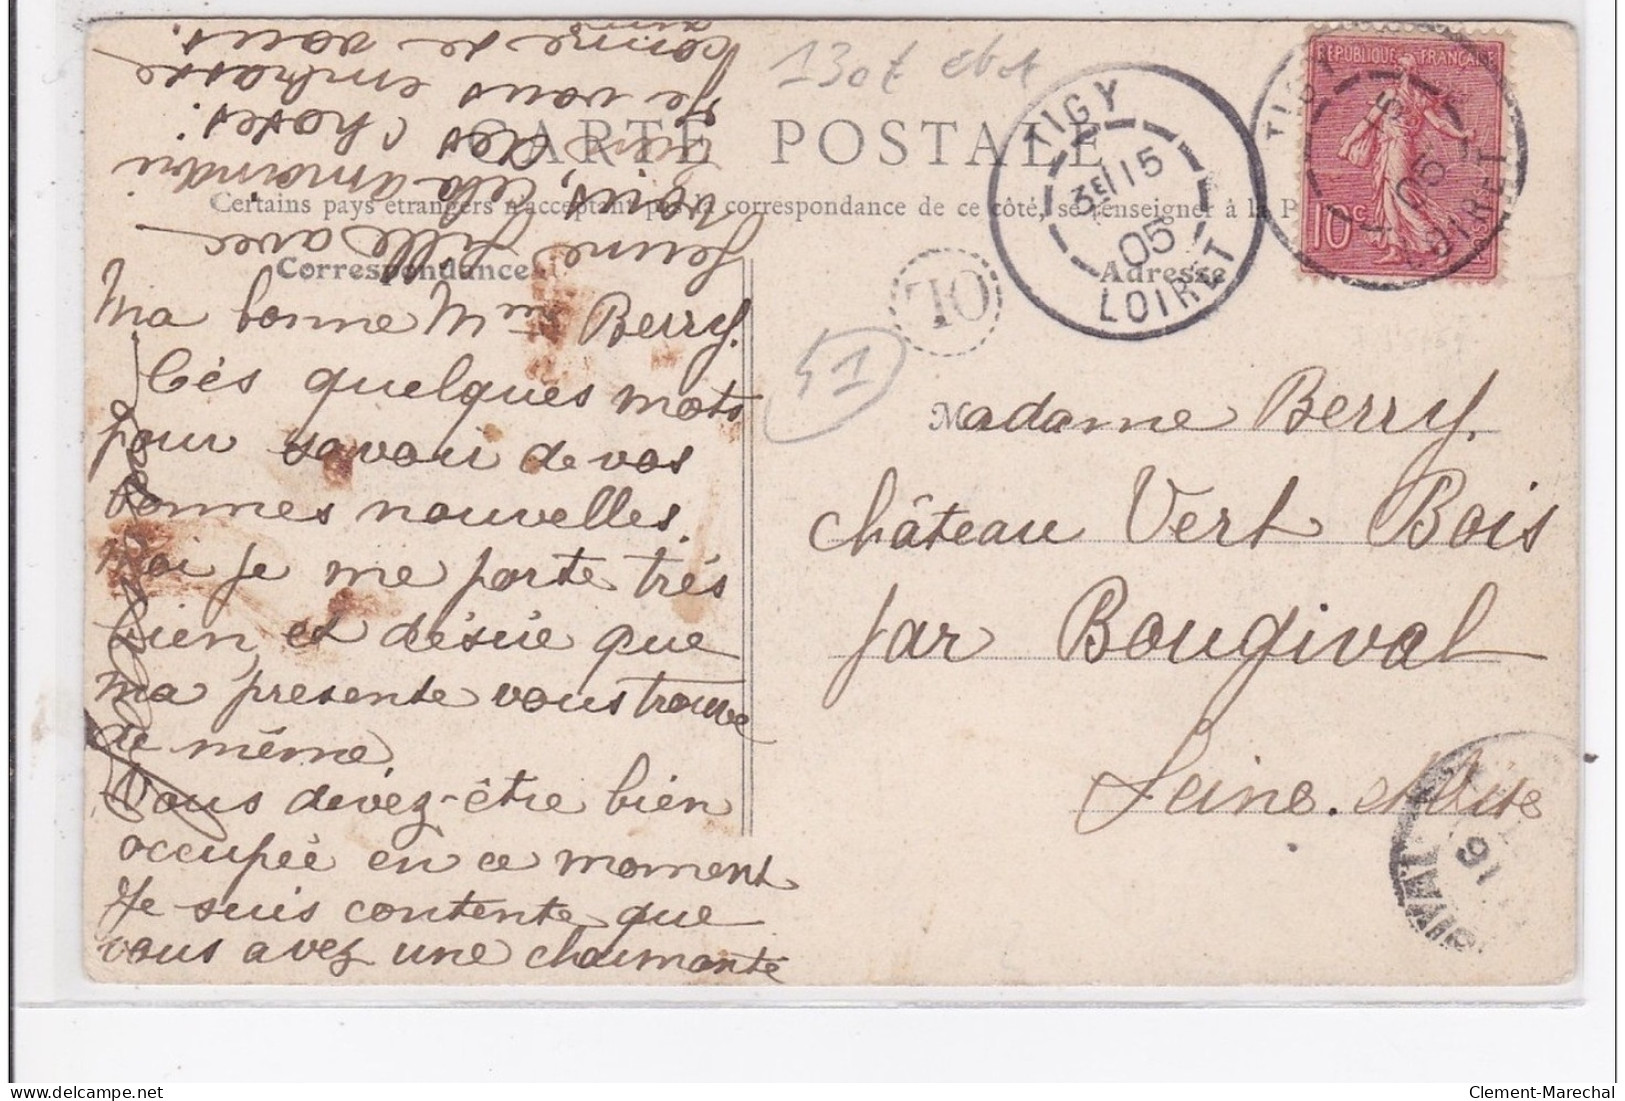 130t
CARTE POSTALE
Certains pays étrangers n'acceptant pas la correspondance de ce côté, se renseigner à la P
Correspondance
Adresse
TIGY
3E 15
05
LOIRET
RÉPUBLIQUE FRANÇAISE
10c
TIGY
15
05
LOIRET
OL
51
Madame Berry.
Château Vert Bois
par Bougival
Seine et Oise
16
Ma bonne Mme Berry.
Cés quelques mots
pour savoir de vos
bonnes nouvelles.
Moi je me porte trés
bien, et désire que
ma présente vous trouve
de même.
Vous devez-être bien
occupée en ce moment
Je suis contente que
vous avez une charmante
jeune fille avec
vous, cela amoindri
bien des choses.
Je vous embrasse
comme je vous
aime